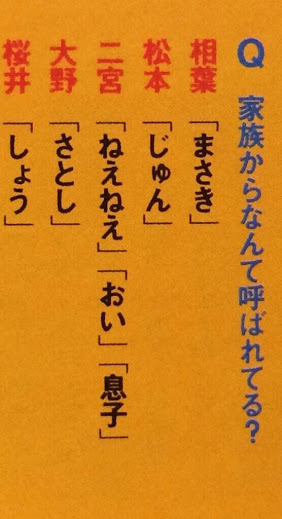 Q 家族からなんて呼ばれてる?
相葉「まさき」
松本「じゅん」
二宮「ねえねえ」「おい」「息子」
大野「さとし」
桜井「しょう」